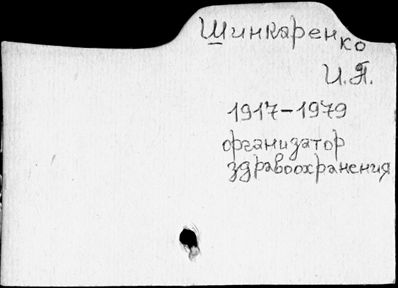 Шинкаренко
И.П.
1917-1979
организатор
здравоохранения